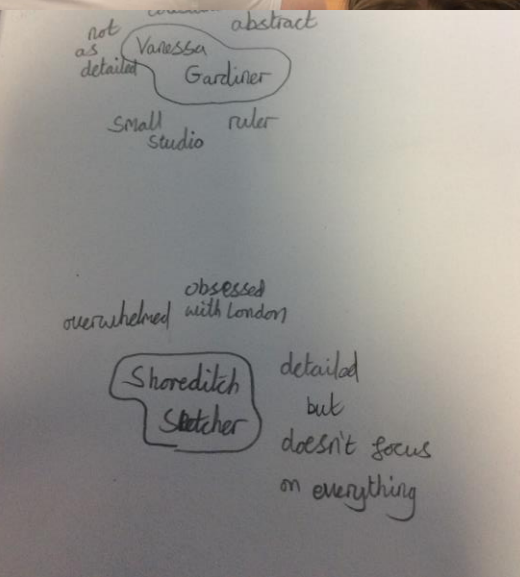 abstract
not
as
detailed
Vanessa
Gardiner
small
studio
ruler
obsessed
with London
overwhelmed
Shoreditch
Sketcher
detailed
but
doesn't focus
on everything